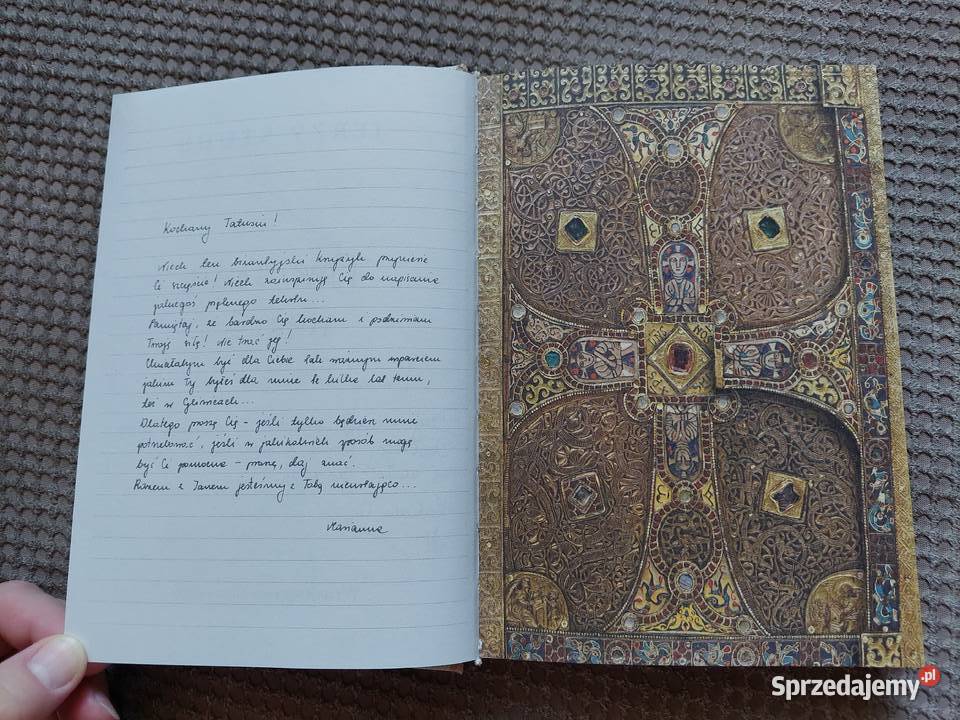 Kochany Tatusiu!
Niech ten bizantyjski krzyżyk przyniesie
Ci szczęście! Niech zainspiruje Cię do napisania
jakiegoś pięknego tekstu...
Pamiętaj, że bardzo Cię kocham i podziwiam
Twoją siłę! Nie trać jej!
Chciałabym być dla Ciebie takim samym wsparciem
jakim Ty byłeś dla mnie te kilka lat temu,
też w Gliwicach...
Dlatego proszę Cię - jeśli tylko będziesz mnie
potrzebować, jeśli w jakikolwiek sposób mogę
być Ci pomocna - proszę, daj znać.
Razem z Janem jesteśmy z Tobą nieustająco...
Marianna
Sprzedajemy.pl